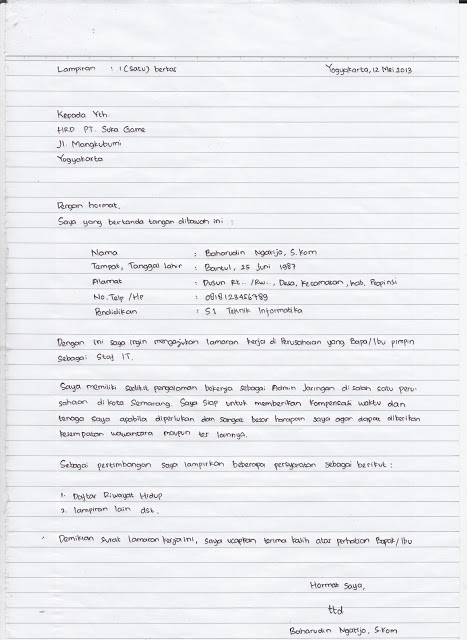 Lampiran : 1 (Satu) berkas Yogyakarta, 12 Mei 2013
Kepada Yth.
HRD PT. Suka Game
Jl. Mangkubumi
Yogyakarta
Dengan hormat,
Saya yang bertanda tangan dibawah ini :
Nama : Baharudin Ngatijo, S.Kom
Tempat, Tanggal lahir : Bantul, 25 Juni 1987
Alamat : Dusun Rt.. /Rw.., Desa, Kecamatan, Kab, Propinsi
No.Telp /Hp : 0818123456789
Pendidikan : S1 Teknik Informatika
Dengan ini saya ingin mengajukan lamaran kerja di Perusahaan yang Bapa/Ibu pimpin
sebagai Staf IT.
Saya memiliki sedikit pengalaman bekerja sebagai Admin Jaringan di salah satu peru-
sahaan di kota Semarang. Saya siap untuk memberikan kompensasi waktu dan
tenaga saya apabila diperlukan dan sangat besar harapan saya agar dapat diberikan
kesempatan wawancara maupun tes lainnya.
Sebagai pertimbangan saya lampirkan beberapa persyaratan sebagai berikut :
1. Daftar Riwayat Hidup
2. lampiran lain dsk.
Demikian surat lamaran kerja ini, saya ucapkan terima kasih atas perhatian Bapak/Ibu
Hormat Saya,
ttd
Baharudin Ngatijo, S.Kom